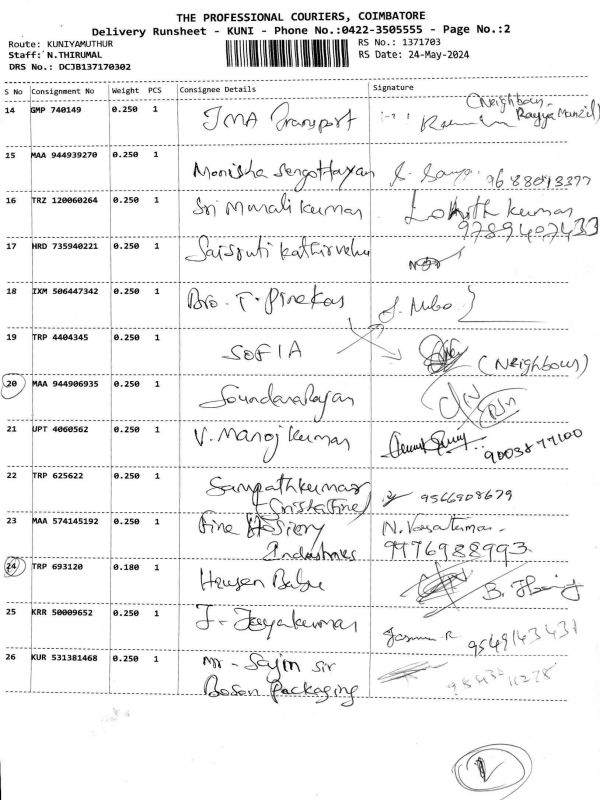 THE PROFESSIONAL COURIERS, COIMBATORE
Delivery Runsheet - KUNI - Phone No.:0422-3505555 - Page No.:2
Route: KUNIYAMUTHUR RS No.: 1371703
Staff: N.THIRUMAL RS Date: 24-May-2024
DRS No.: DCJB137170302
S No Consignment No Weight PCS Consignee Details Signature
14 GMP 740149 0.250 1 JMA Transport (Neighbour
15 MAA 944939270 0.250 1 Monisha Sengottayan
16 TRZ 120060264 0.250 1 Sri Murali kumar Lohith kumar
9789407433
17 HRD 735940221 0.250 1 kathirvelu
18 IXM 506447342 0.250 1 Bro. T.
19 TRP 4404345 0.250 1 SOFIA (Neighbour)
20 MAA 944906935 0.250 1 Soundararajan
21 UPT 4060562 0.250 1 V. Manoj kumar 9003877100
22 TRP 625622 0.250 1 Sampathkumar 9566908679
23 MAA 574145192 0.250 1 Fine Hosiery
Industries 9976988993
24 TRP 693120 0.180 1 Hussen Babu
25 KRR 50009652 0.250 1 J. Jayakumar 9549143437
26 KUR 531381468 0.250 1 Mr - Sajin sir
Boson Packaging